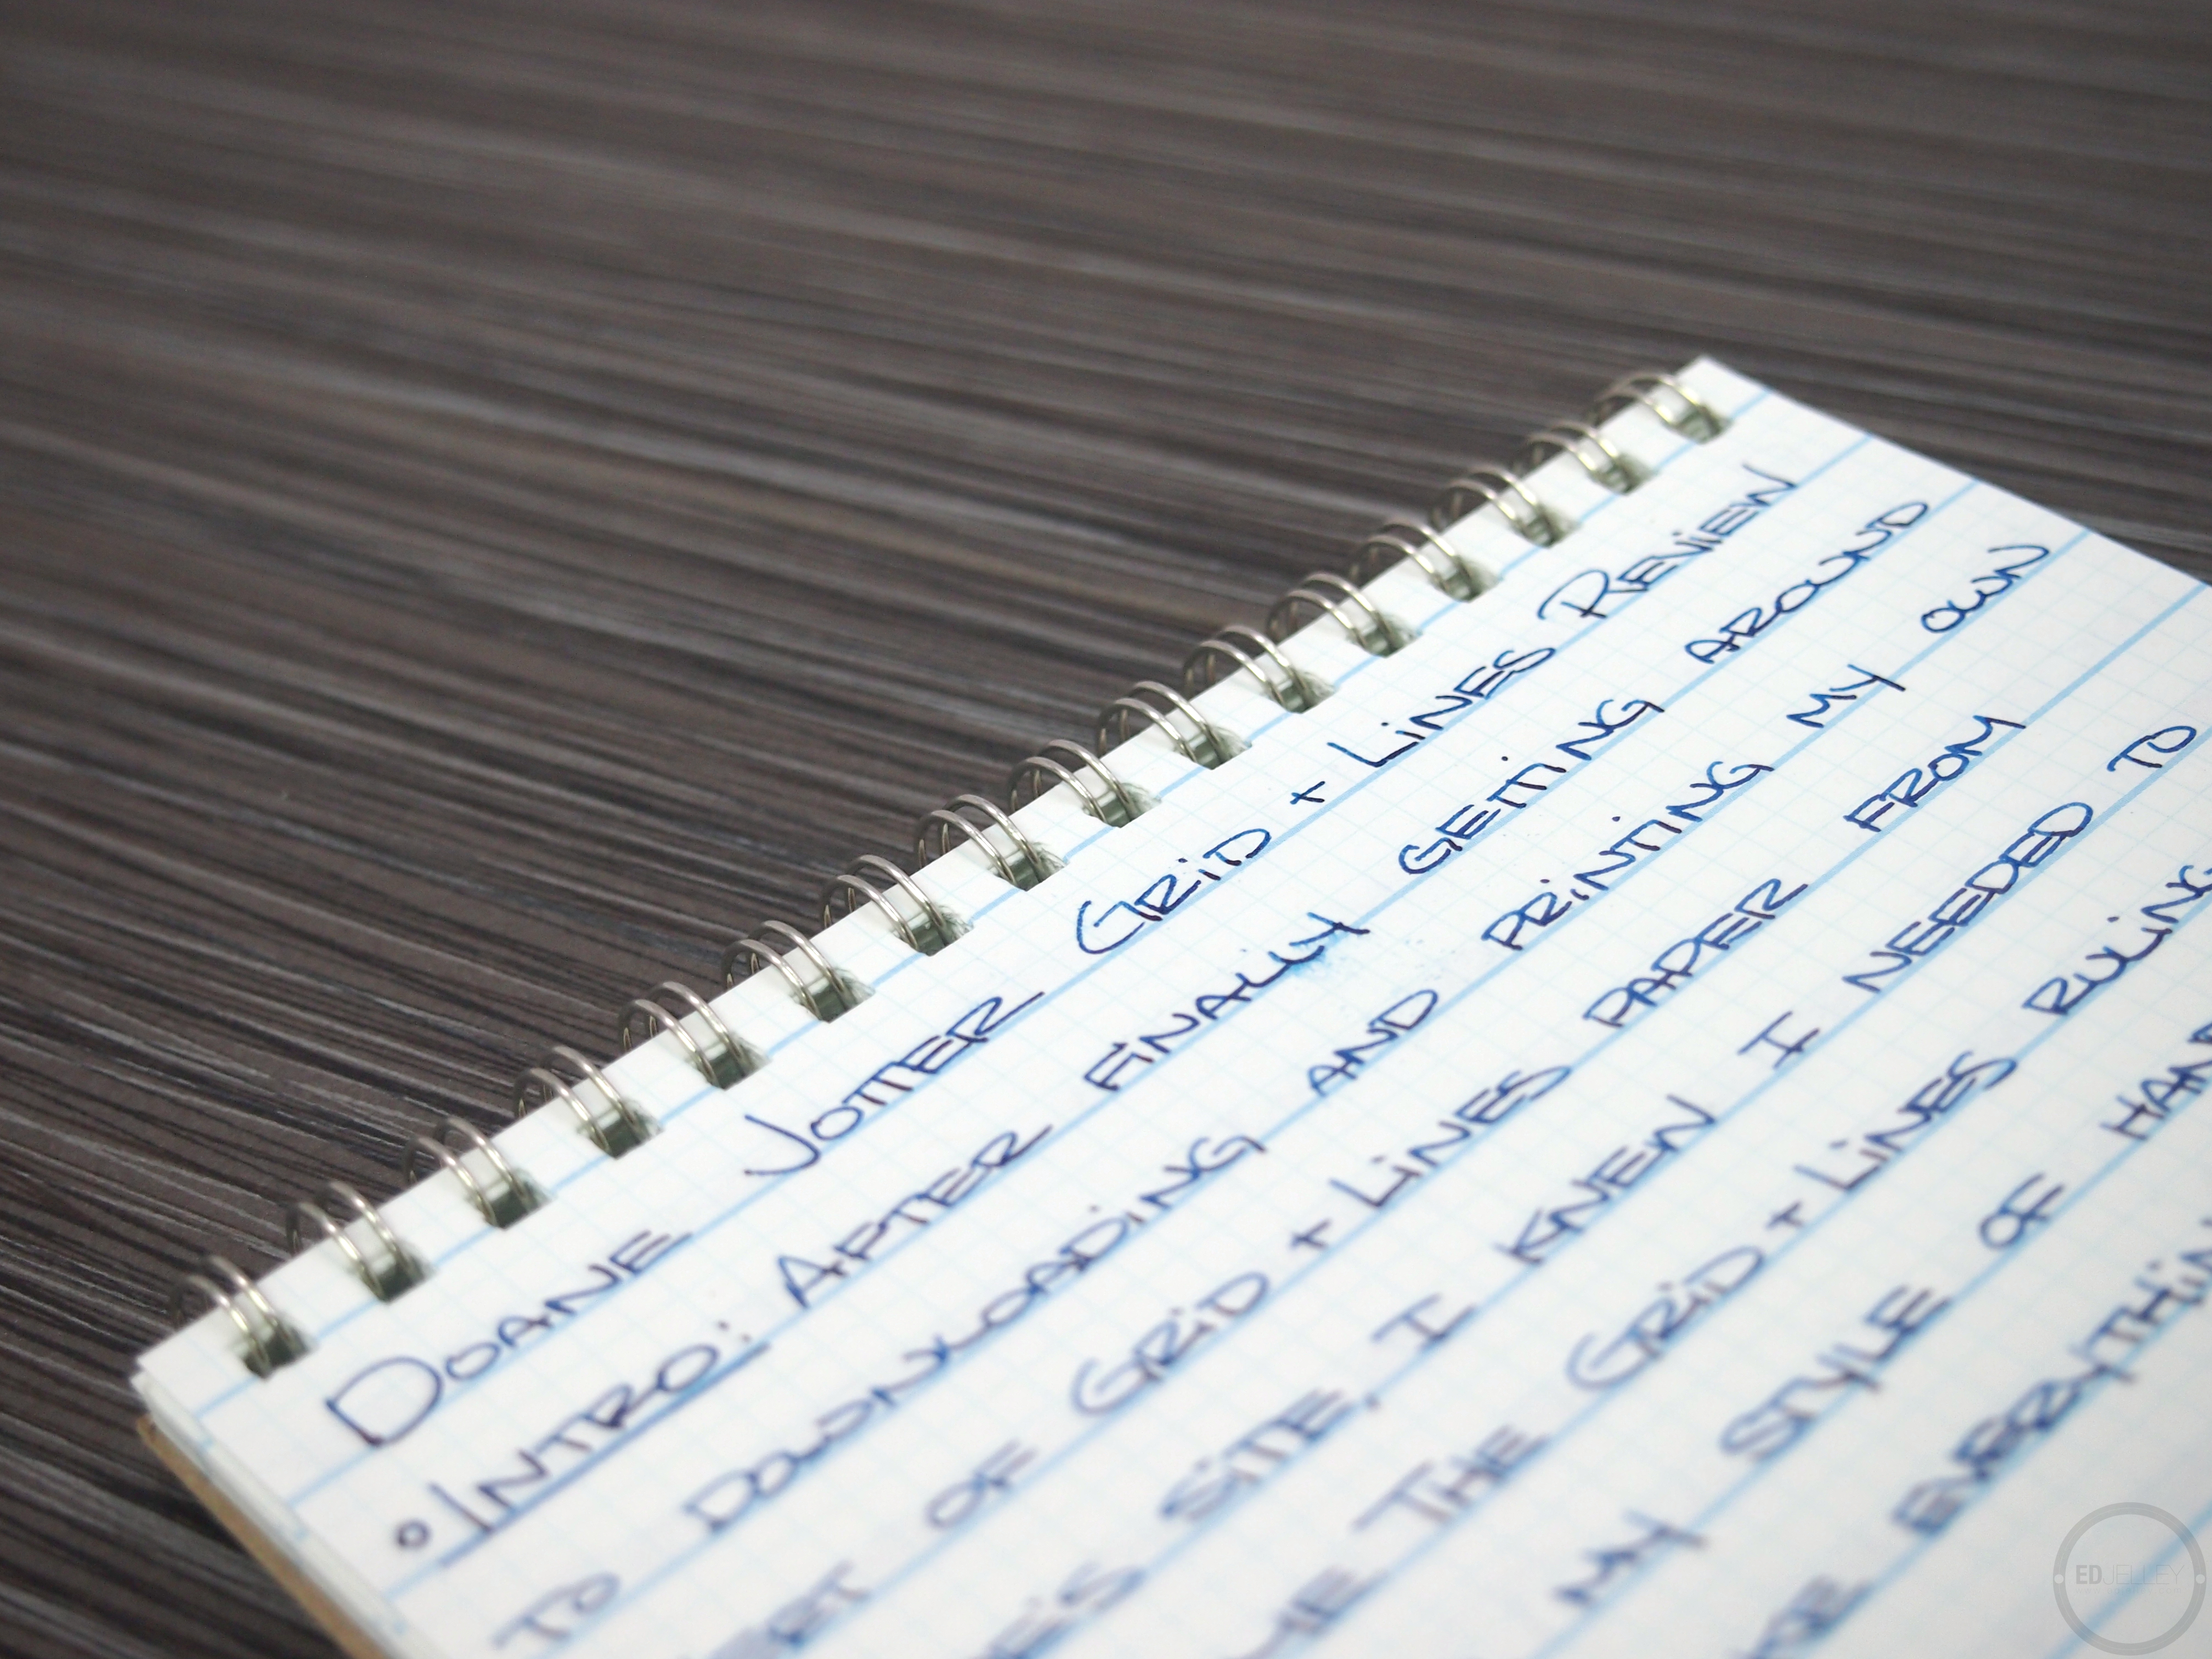 Doane Jotter Grid + Lines Review
• Intro: After finally getting around
to downloading and printing my own
of Grid + Lines paper from
site, I knew I needed to
the Grid + Lines ruling
my style of
EDJELLEY